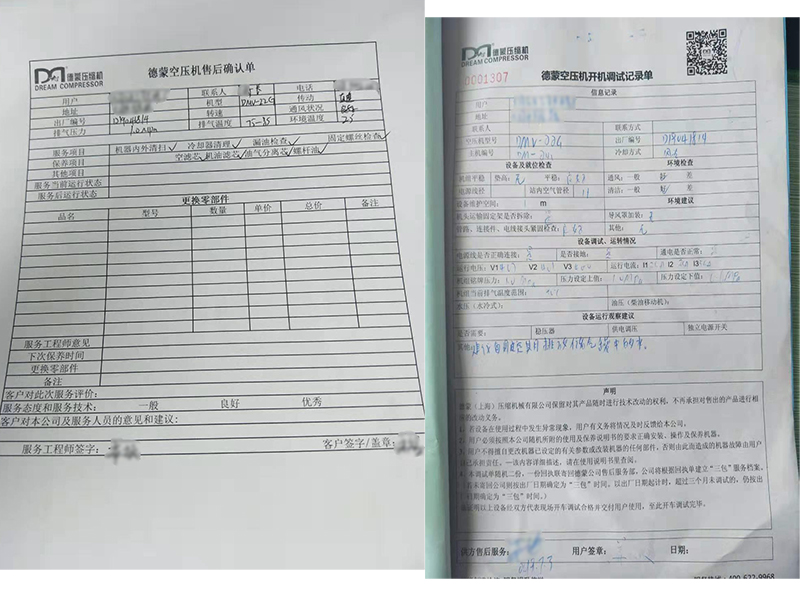 德蒙压缩机
DREAM COMPRESSOR
德蒙空压机售后确认单
用户 联系人 电话
地址 机型 DMV-22G 传动 直连
出厂编号 转速 通风状况
排气压力 1.0mpa 排气温度 75-85 环境温度 25
服务项目 机器内外清扫✓ 冷却器清理✓ 漏油检查✓ 固定螺丝检查✓
保养项目 空滤芯✓ 机油滤芯✓ 油气分离芯✓ 螺杆油✓
其他项目
服务当前运行状态
服务后运行状态
更换零部件
品名 型号 数量 单价 总价 备注
服务工程师意见
下次保养时间
更换零部件
备注
客户对此次服务评价:
服务态度和服务技术: 一般 良好 优秀
客户对本公司及服务人员的意见和建议:
服务工程师签字: 客户签字/盖章:
德蒙压缩机
DREAM COMPRESSOR
0001307
德蒙空压机开机调试记录单
信息记录
用户
地址
联系人 联系方式
空压机型号 DMV-22G 出厂编号
主机编号 冷却方式
设备及就位检查 环境检查
机组平稳 垫高: 无 平稳: 通风: 一般 好 差
电源线径 站内空气管径 清洁: 一般 好 差
设备维护空间: 1 m 环境建议
机头运输固定架是否拆除: 导风罩加装:
管路、连接件、电线接头紧固检查: 其他: 无
设备调试、运转情况
电源线是否正确连接: 是否接地: 通电是否正常:
运行电压: V1 V2 V3 运行电流: I1 I2 I3
机组铭牌压力: 压力设定上值: 压力设定下值:
机组当前排气温度范围:
水压（水冷式）: 油压（柴油移动机）:
设备运行观察建议
是否需要: 稳压器 供电调压 独立电源开关
其他:
声明
德蒙（上海）压缩机械有限公司保留对其产品随时进行技术改动的权利，不再承担对售出的产品进行相
同的改动义务。
若设备在使用过程中发生异常现象，用户有义务将情况及时反馈给本公司。
用户必须按照本公司随机所附的使用及保养说明书的要求正确安装、操作及保养机器。
用户不得擅自更改机器已设定的有关参数或改装机器的任何部件，否则由此而造成的机器故障由用户
自己承担责任。一该内容详细描述，请在使用说明书里查阅。
本调试单随机二份，一份回执联寄回德蒙公司售后服务部，公司将根据回执单建立“三包”服务档案。
未寄回公司则按出厂日期确定为“三包”时间。以出厂日期起计时，超过三个月未调试的，仍按出
厂日期确定为“三包”时间。）
证明以上设备经双方代表现场开车调试合格并交付用户使用，至此开车调试完毕。
供方售后服务: 用户签章: 日期:
400-622-9968